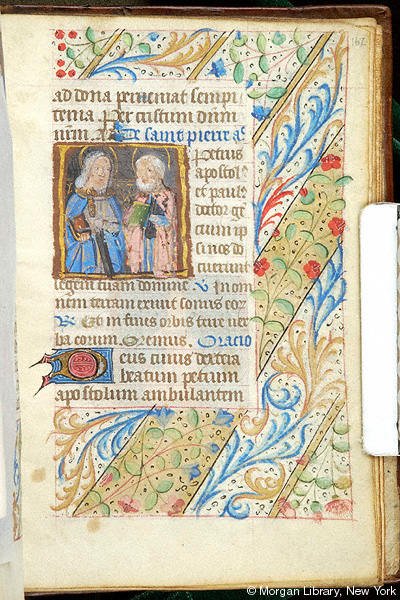 162
ad dona perveniat sempi
terna Per cristum domi
num Am De saint pierre as
Petrus
apostol
et paul
doctor ge
cium ip
si nos do
cuerunt
legem tuam domine V In om
nem terram exivit sonus eor
R Et in fines orbis terre ver
ba eorum Oremus. Oracio
Deus cuius dextera
beatum petrum
apostolum ambulantem
© Morgan Library, New York